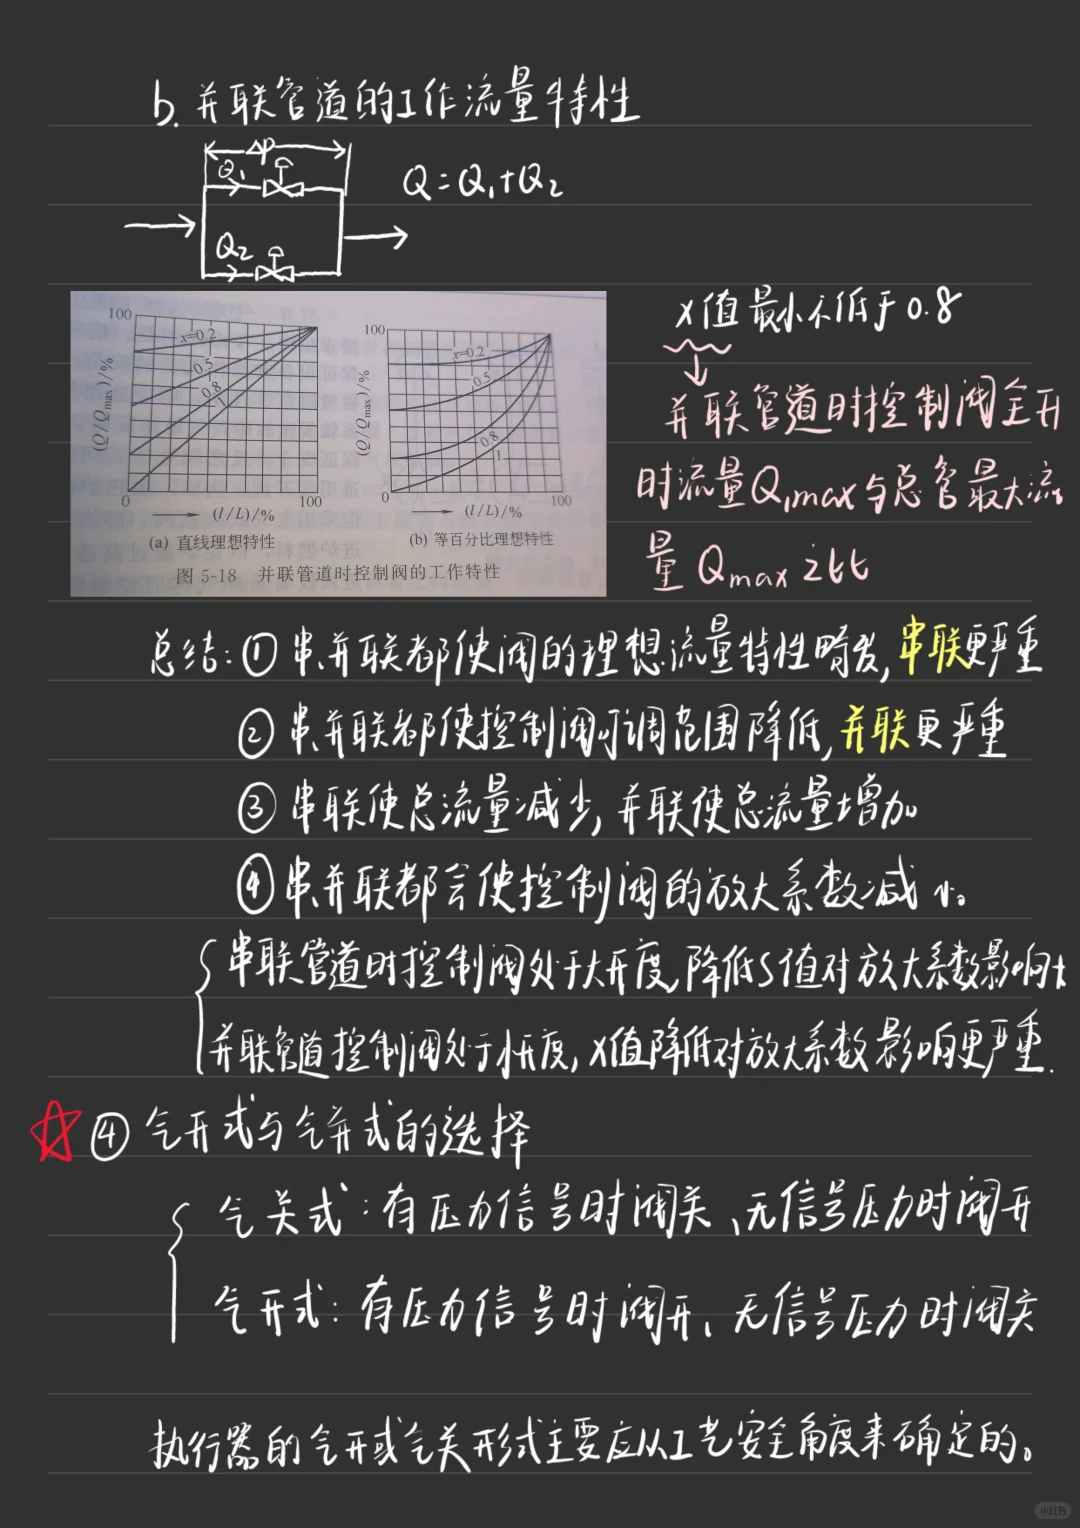 b. 并联管道的工作流量特性
ΔP
Q₁
Q=Q₁+Q₂
Q₂
100
(Q/Qmax)/%
x=0.2
0.5
0.8
1
0
100
(l/L)/%
(a) 直线理想特性
100
(Q/Qmax)/%
x=0.2
0.5
0.8
1
0
100
(l/L)/%
(b) 等百分比理想特性
图 5-18 并联管道时控制阀的工作特性
x值最小不低于0.8
并联管道时控制阀全开
时流量Q₁max与总管最大流
量Qmax之比
总结:①串、并联都使阀的理想流量特性畸变,串联更严重
②串、并联都使控制阀可调范围降低,并联更严重
③串联使总流量减少,并联使总流量增加
④串、并联都会使控制阀的放大系数减小。
串联管道时控制阀处于大开度,降低S值对放大系数影响大
并联管道控制阀处于小开度,x值降低对放大系数影响更严重.
④气开式与气关式的选择
气关式:有压力信号时阀关、无信号压力时阀开
气开式:有压力信号时阀开、无信号压力时阀关
执行器的气开或气关形式主要应从工艺安全角度来确定的。
小红书